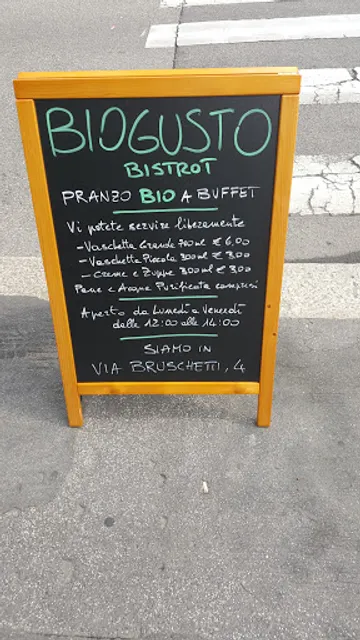 BIOGUSTO
BISTROT
PRANZO BIO A BUFFET
Vi potete servire liberamente
- Vaschetta Grande 700 ml € 6,00
- Vaschetta Piccola 300 ml € 3,00
- Creme e Zuppe 300 ml € 3,00
Pane e Acqua Purificata compresi
Aperto da Lunedì a Venerdì
dalle 12:00 alle 14:00
SIAMO IN
VIA BRUSCHETTI, 4